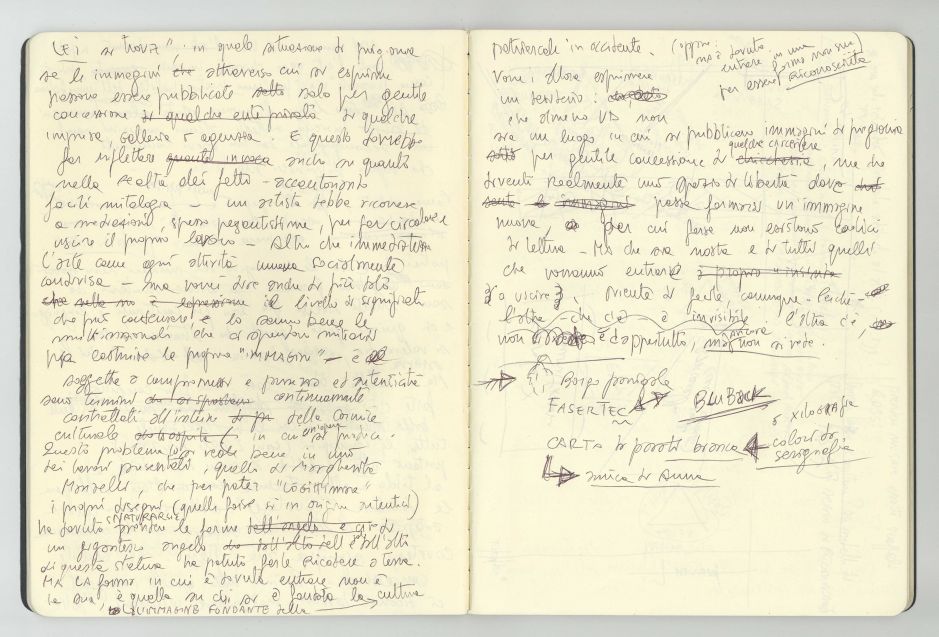 LEI si trova" in quale situazione di prigionia
se le immagini che attraverso cui si esprime
possono essere pubblicate solo per gentile
concessione di qualche ente privato di qualche
impresa, galleria o agenzia. E questo dovrebbe
far riflettere anche su quanto
nella realtà dei fatti - accantonando
facili mitologie - un artista debba ricorrere
a mediazioni, spesso pesantissime, per far circolare e
uscire il proprio lavoro - Altro che immediatezza
L'arte come ogni attività umana socialmente
condivisa - ma vorrei dire anche di più solo
il livello di significati
che può contenere, e lo sanno bene le
multinazionali che di operazioni
per costruire la propria "IMMAGINE" - è
soggetta a compromessi e purezza ed autenticità
sono termini continuamente
contrattati all'interno della cornice
culturale in cui si
Questo problema lo si vede bene in uno
dei lavori presentati, quello di Margherita
Morselli, che per poter "LEGITTIMARE"
i propri disegni (quelli forse sì in origine autentici)
ha dovuto SNATURARLI prendere le forme dell'angelo e
un gigantesco angelo e dall'alto
di questa statura ha potuto farle ricadere a terra.
MA LA forma in cui è dovuta entrare non è
la sua, è quella su cui si è fondata la cultura
L'IMMAGINE FONDANTE della
patriarcale in occidente. (oppure:
non è dovuta
entrare in una
forma non sua
per essere RICONOSCIUTA)
vorrei allora esprimere
un desiderio:
che almeno VD non
sia un luogo in cui si pubblicano immagini di prigionia
per gentile concessione di qualche carceriere chicchessia, ma che
diventi realmente uno spazio di libertà dove
possa formarsi un'immagine
nuova, per cui forse non esistono codici
di lettura - MA che sia nostra e di tutti quelli
che vorranno entrare
o uscire. Niente di facile, comunque - Perché -
L'altra - che c'è è invisibile. L'altra c'è,
non è dappertutto, ma ancora non si vede.
Borgo panigale
FASERTEC
BLUBACK
CARTA di parati bianca
o xilografia
colori da
serigrafia
amica di Anna